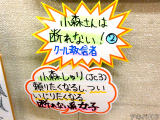 小森さんは
断れない!②
クール教信者
小森しゅり(JC3)
頼りたくなるし、つい
いじりたくなる
断れない系女子